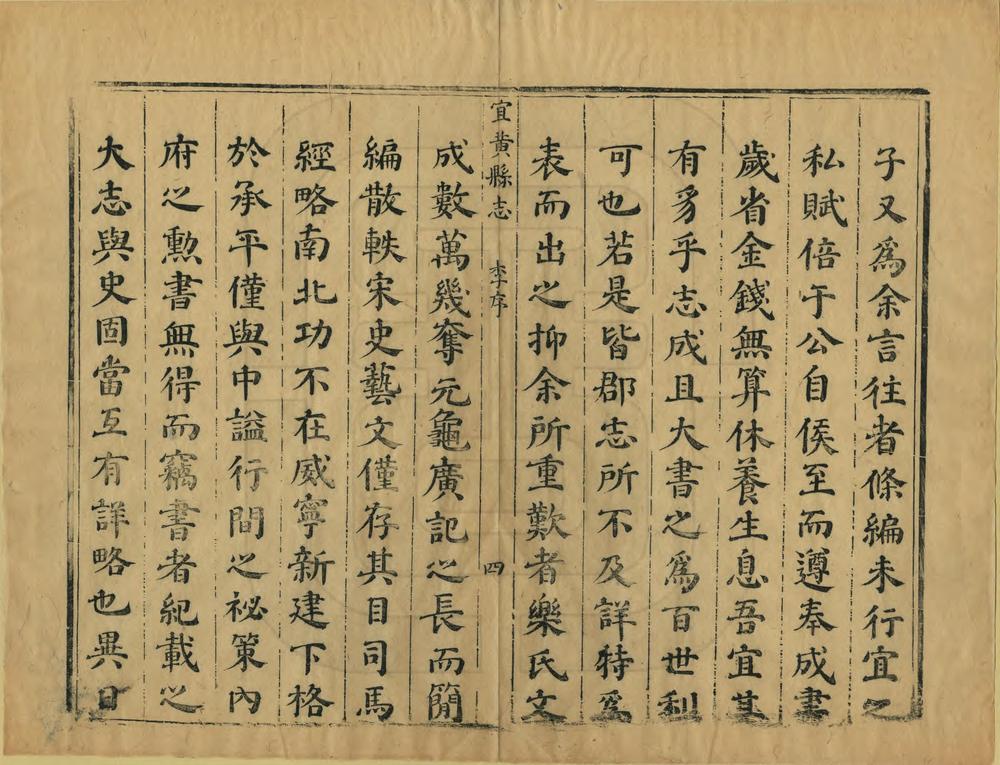 子又爲余言往者條編未行宜之
私賦倍于公自侯至而遵奉成書
歲省金錢無算休養生息吾宜其
有豸乎志成且大書之爲百世利
可也若是皆郡志所不及詳特爲
表而出之抑余所重歎者樂氏文
宜黄縣志 李序 四
成數萬幾奪元龜廣記之長而簡
編散軼宋史藝文僅存其目司馬
經略南北功不在威寧新建下格
於承平僅與中謚行間之祕策內
府之勳書無得而竊書者紀載之
大志與史固當互有詳略也異日